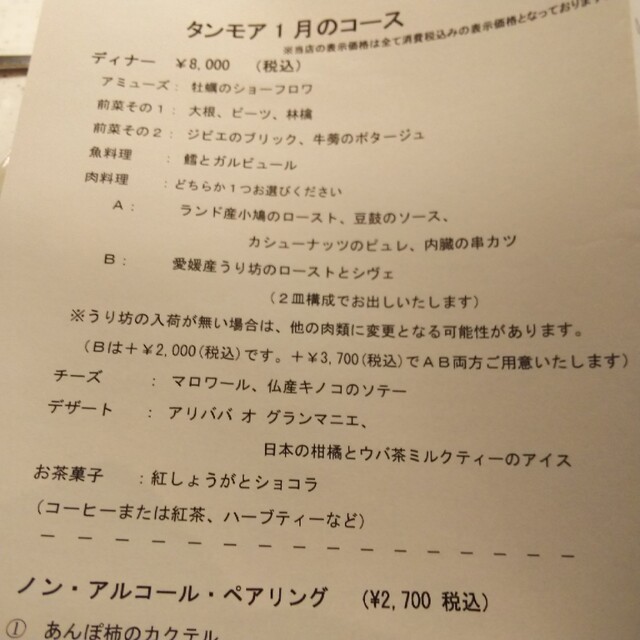 タンモア1月のコース
※当店の表示価格は全て消費税込みの表示価格となっております
ディナー ￥8,000 （税込）
アミューズ： 牡蠣のショーフロワ
前菜その１： 大根、ビーツ、林檎
前菜その２： ジビエのブリック、牛蒡のポタージュ
魚料理 ： 鱈とガルビュール
肉料理 ：どちらか１つお選びください
A： ランド産小鳩のロースト、豆鼓のソース、
カシューナッツのピュレ、内臓の串カツ
B： 愛媛産うり坊のローストとシヴェ
（２皿構成でお出しいたします）
※うり坊の入荷が無い場合は、他の肉類に変更となる可能性があります。
（Bは＋￥2,000(税込)です。＋￥3,700(税込)でＡＢ両方ご用意いたします）
チーズ ： マロワール、仏産キノコのソテー
デザート ： アリババ オ グランマニエ、
日本の柑橘とウバ茶ミルクティーのアイス
お茶菓子 ：紅しょうがとショコラ
（コーヒーまたは紅茶、ハーブティーなど）
－－－－－－－－－－－－－－－－
ノン・アルコール・ペアリング （¥2,700 税込）
① あんぽ柿のカクテル